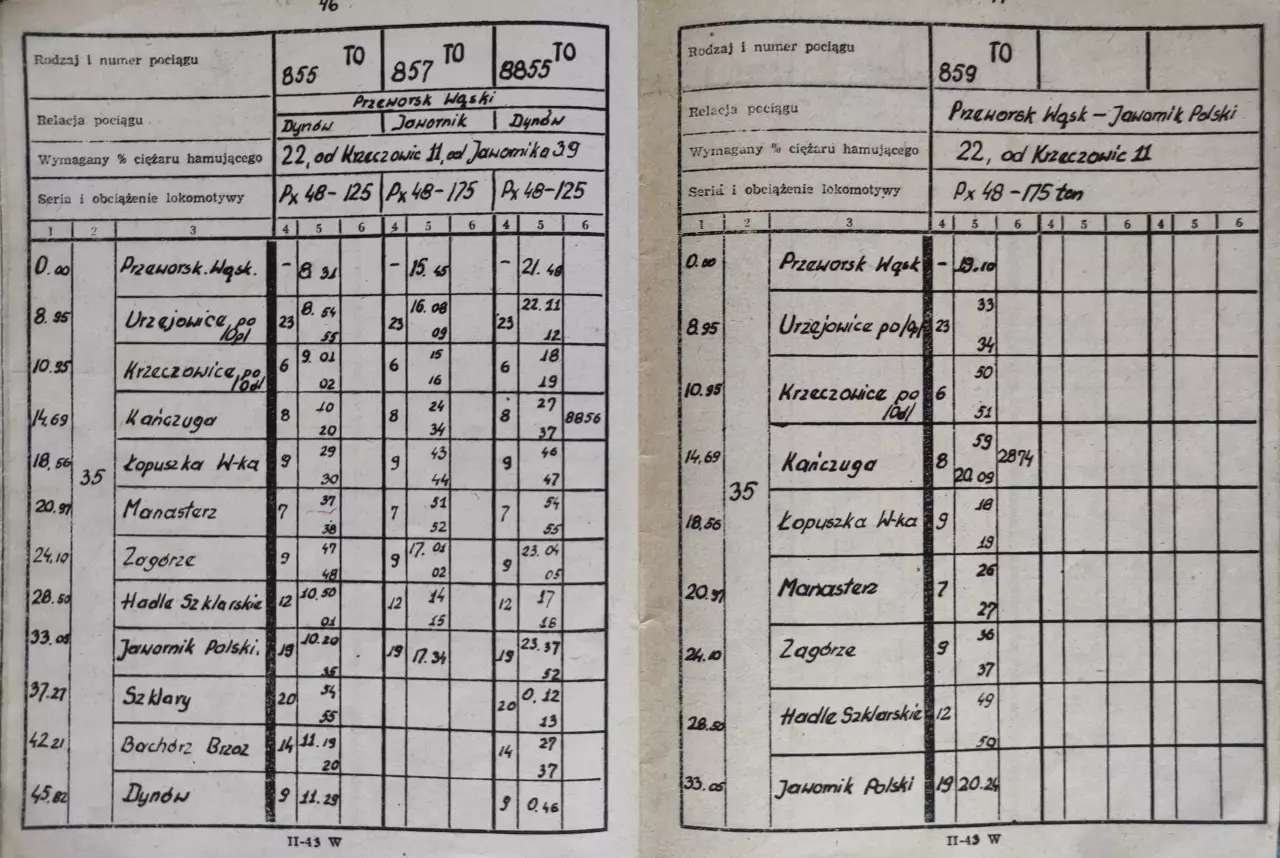 46
Rodzaj i numer pociągu
855 TO 857 TO 8855 TO
Przeworsk Wąski
Relacja pociągu
Dynów Jawornik Dynów
Wymagany % ciężaru hamującego
22, od Krzeczowic 11, od Jawornika 39
Seria i obciążenie lokomotywy
Px 48-125 Px 48-175 Px 48-125
1 2 3 4 5 6 4 5 6 4 5 6
0.00 Przeworsk.Wąsk. - 8 31 - 15.45 - 21.48
8.95 Urzejowice po 23 8.54 23 16.08 23 22.11
/Op/ 55 09 12
10.95 Krzeczowice po 6 9.01 6 15 6 18
/Od/ 02 16 19
14.69 Kańczuga 8 10 8 24 8 27 8856
20 34 37
18.56 35 Łopuszka W-ka 9 29 9 43 9 46
30 44 47
20.97 Manasterz 7 37 7 51 7 54
38 52 55
24.10 Zagórze 9 47 9 17.01 9 23.04
48 02 05
28.50 Hadle Szklarskie 12 10.50 12 14 12 17
01 15 18
33.05 Jawornik Polski. 19 10.20 19 17.34 19 23.37
35 52
37.27 Szklary 20 54 20 0.12
55 13
42.21 Bachórz Brzoz 14 11.19 14 27
20 37
45.82 Dynów 9 11.29 9 0.46
II-43 W
Rodzaj i numer pociągu
859 TO
Relacja pociągu
Przeworsk Wąsk - Jawornik Polski
Wymagany % ciężaru hamującego
22, od Krzeczowic 11
Seria i obciążenie lokomotywy
Px 48-175 ton
1 2 3 4 5 6 4 5 6 4 5 6
0.00 Przeworsk Wąsk - 19.10
8.95 Urzejowice po/Op/ 23 33
34
10.95 Krzeczowice po 6 50
/Od/ 51
14,69 Kańczuga 8 59 2874
20.09
35
18.56 Łopuszka W-ka 9 18
19
20.97 Manasterz 7 26
27
24.10 Zagórze 9 36
37
28.50 Hadle Szklarskie 12 49
50
33.05 Jawornik Polski 19 20.24
II-43 W